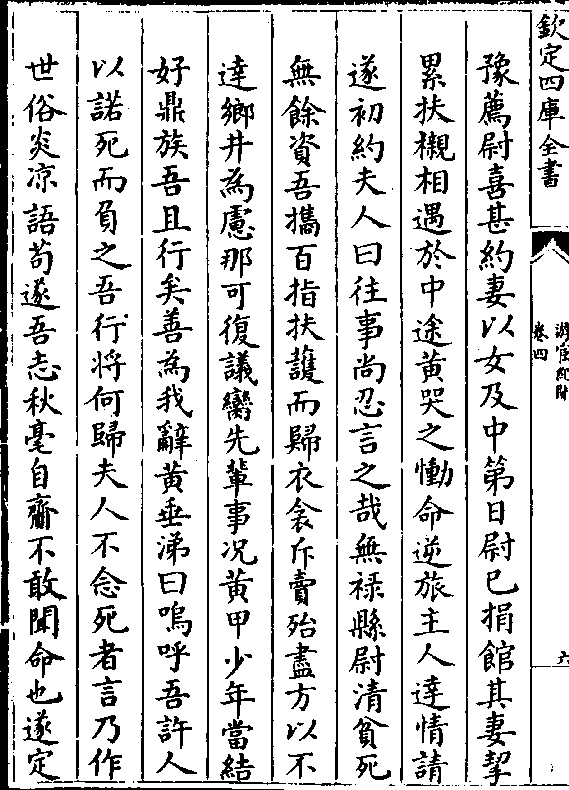 欽定四庫全書
游宦紀聞
卷四
六
豫薦尉喜甚約妻以女及中第日尉已捐館其妻挈
累扶櫬相遇於中途黄哭之慟命逆旅主人達情請
遂初約夫人曰往事尚忍言之哉無禄縣尉清貧死
無餘資吾攜百指扶護而歸衣衾斥賣殆盡方以不
達鄉井為慮那可復議鸞先輩事況黄甲少年當結
好鼎族吾且行矣善為我辭黄垂涕曰嗚呼吾許人
以諾死而負之吾行將何歸夫人不念死者言乃作
世俗炎凉語苟遂吾志秋毫自齎不敢聞命也遂定